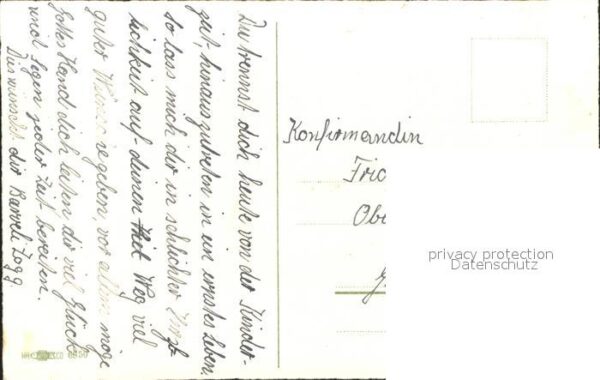 Du trennst dich heute von der Kinder-
zeit, hinaus zutreten in ein ernstes Leben.
So lass mich dir in schlichter Herz-
lichkeit auf deinen Weg viel
guter Wünsche geben, vor allem möge
Gottes Hand dich leiten dir viel Glück
und Segen jeder Zeit bereiten.
Dies wünscht dir Barreli Zogg
Konfirmandin
Fric
Obe
privacy protection
Datenschutz